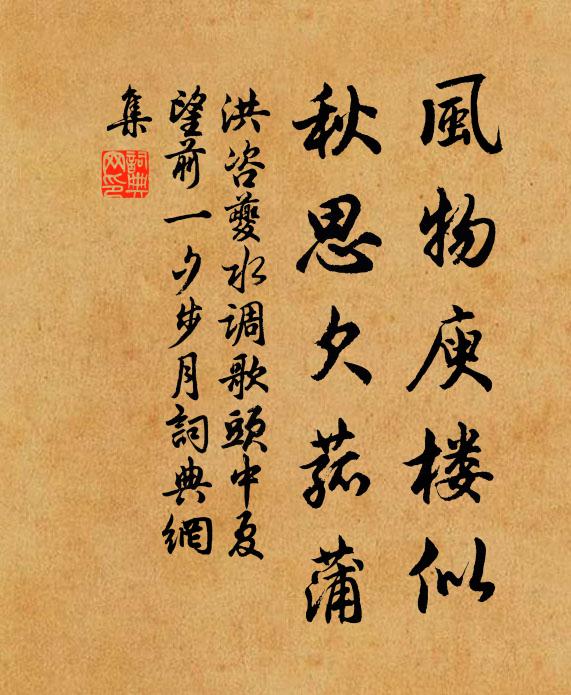 風物庾楼似
秋思欠菰蒲
洪咨夔水调歌頭中夏
望前一夕步月詞典網
集
詞典
网印